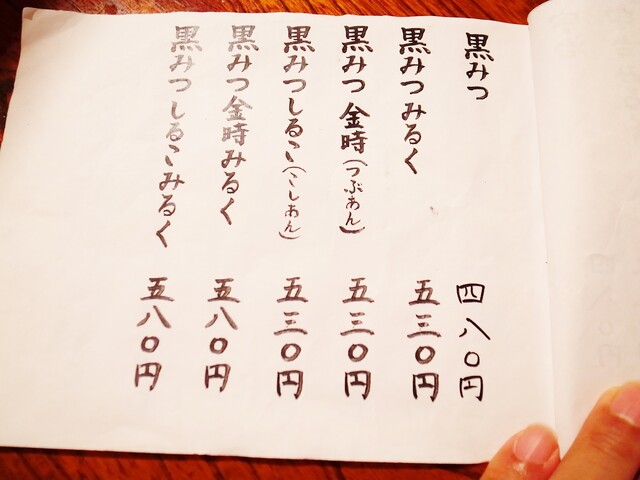 黒みつ 四八〇円
黒みつみるく 五三〇円
黒みつ金時(つぶあん) 五三〇円
黒みつしるこ(こしあん) 五三〇円
黒みつ金時みるく 五八〇円
黒みつしるこみるく 五八〇円